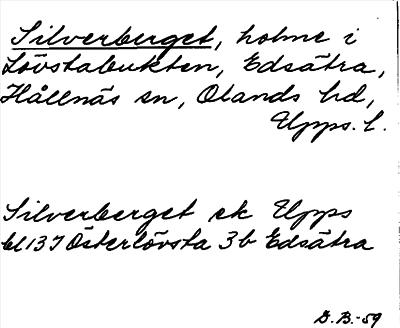 Silverberget, holme i
Lövstabukten, Edsätra,
Hållnäs sn, Olands hd,
Upps. l.
Silverberget ek Upps
bl 137 Österlövsta 3b Edsätra
G. B. -59